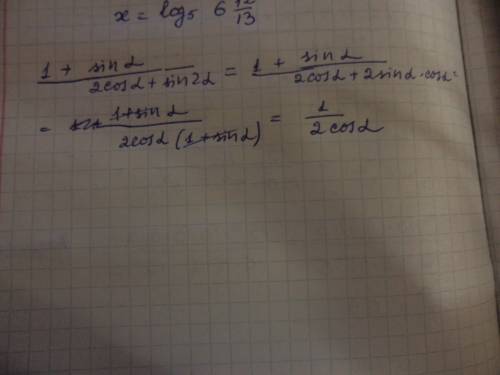 x = log₅ 6 12/13
(1 + sin α)/(2cos α + sin 2α) = (1 + sin α)/(2cos α + 2sin α · cos α) =
= (1 + sin α)/(2cos α (1 + sin α)) = 1/(2cos α)